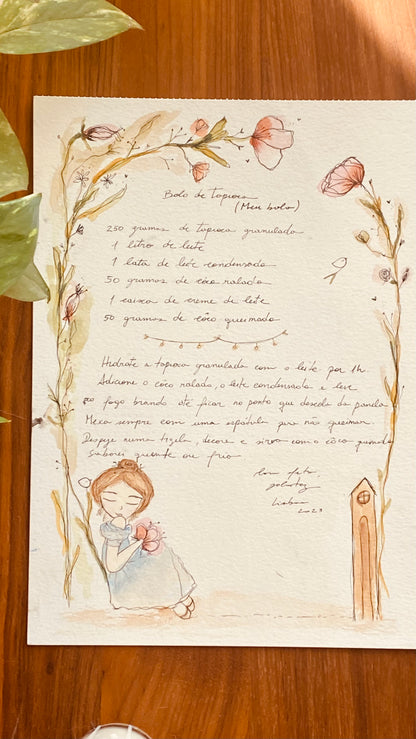 Bolo de tapioca
(Meu bolo)
250 gramas de tapioca granulada
1 litro de leite
1 lata de leite condensado
50 gramas de côco ralado
1 caixa de creme de leite
50 gramas de côco queimado
Hidrate a tapioca granulada com o leite por 1h.
Adicione o côco ralado, o leite condensado e leve
ao fogo brando até ficar no ponto que descola da panela
Mexa sempre com uma espátula para não queimar.
Despeje numa tigela, decore e sirva com o côco queimado
Saborei quente ou frio
Lisboa
2023